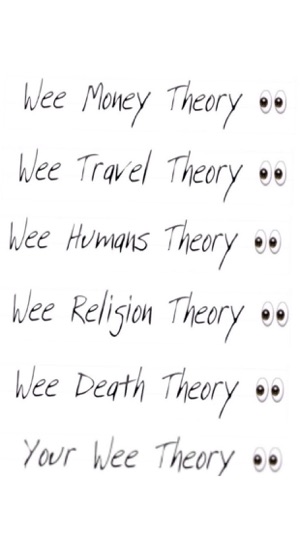 Wee Money Theory 👀
Wee Travel Theory 👀
Wee Humans Theory 👀
Wee Religion Theory 👀
Wee Death Theory 👀
Your Wee Theory 👀